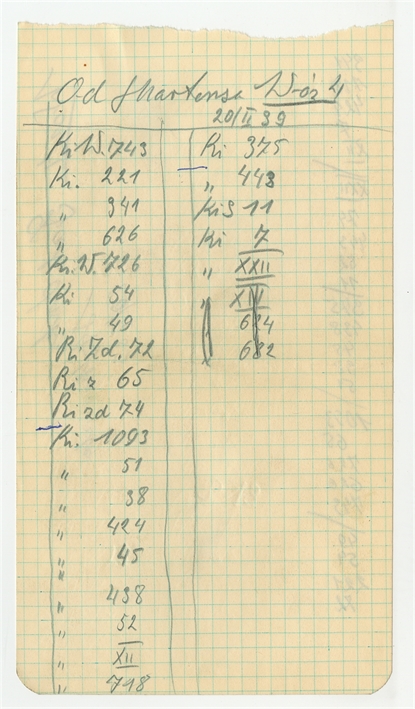 Od Martensa Wóz 4
20/II 39
Ki W. 743
Ki. 221
„ 341
„ 626
Ki. W. 726
Ki 54
„ 49
Ri Zd. 72
Ri z 65
Ri zd 74
Ki. 1093
„ 51
„ 38
„ 424
„ 45
„
„ 438
„ 52
„ XII
„ 718
Ki 375
„ 443
KiS 11
Ki 7
„ XXII
„ XIII
„ 684
„ 682